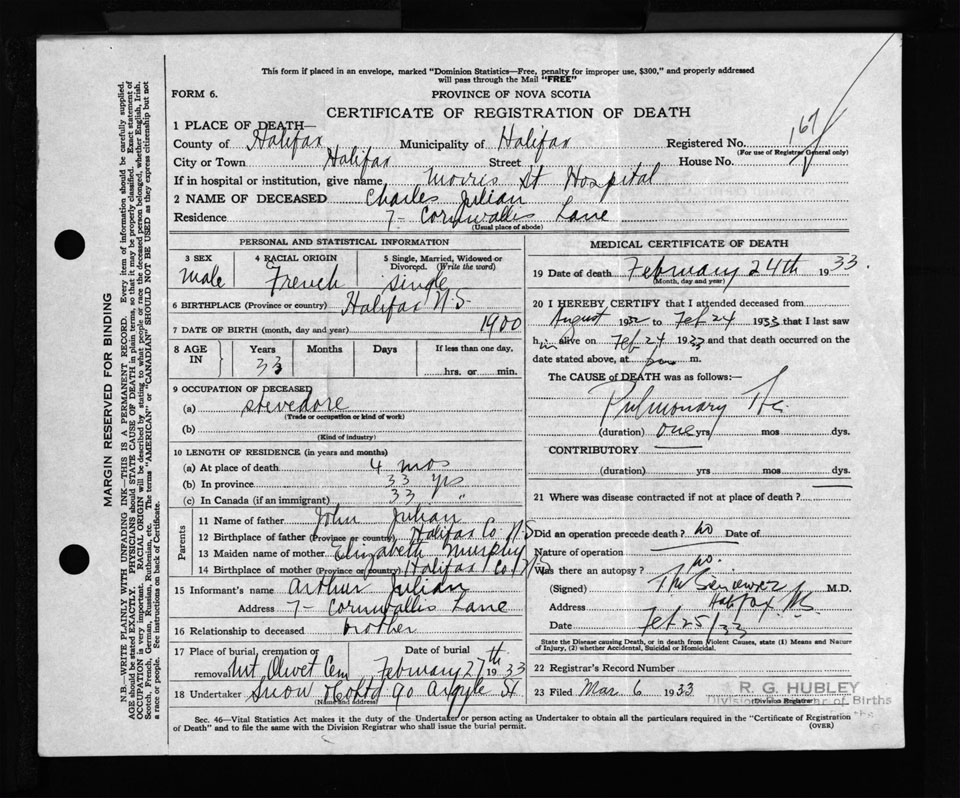 This form if placed in an envelope, marked "Dominion Statistics—Free, penalty for improper use, $300," and properly addressed
will pass through the Mail "FREE"
FORM 6.
PROVINCE OF NOVA SCOTIA
CERTIFICATE OF REGISTRATION OF DEATH
1 PLACE OF DEATH—
County of Halifax Municipality of Halifax Registered No. 167
(For use of Registrar General only)
City or Town Halifax Street House No.
If in hospital or institution, give name Morris St Hospital
2 NAME OF DECEASED Charles Julian
Residence 7 - Cornwallis Lane
(Usual place of abode)
PERSONAL AND STATISTICAL INFORMATION
3 SEX
male
4 RACIAL ORIGIN
French
5 Single, Married, Widowed or
Divorced. (Write the word)
single
6 BIRTHPLACE (Province or country) Halifax N.S.
7 DATE OF BIRTH (month, day and year) 1900
8 AGE
IN
Years
33
Months
Days
If less than one day,
hrs. or min.
9 OCCUPATION OF DECEASED
(a) stevedore
(Trade or occupation or kind of work)
(b)
(Kind of industry)
10 LENGTH OF RESIDENCE (in years and months)
(a) At place of death 4 mos
(b) In province 33 yrs
(c) In Canada (if an immigrant) 33 "
Parents
11 Name of father John Julian
12 Birthplace of father (Province or country) Halifax Co. N.S
13 Maiden name of mother Elizabeth Murphy
14 Birthplace of mother (Province or country) Halifax Co N.S
15 Informant's name Arthur Julian
Address 7- Cornwallis Lane
16 Relationship to deceased brother
17 Place of burial, cremation or
removal Mt Olivet Cem
Date of burial
February 27th 1933
18 Undertaker Snow & Co Ltd 90 Argyle St
(Name and address)
MEDICAL CERTIFICATE OF DEATH
19 Date of death February 24th 1933.
(Month, day and year)
20 I HEREBY CERTIFY that I attended deceased from
August 1932 to Feb 24 1933 that I last saw
him alive on Feb 24 1933 and that death occurred on the
date stated above, at m.
The CAUSE of DEATH was as follows:—
Pulmonary
(duration) one yrs mos dys.
CONTRIBUTORY
(duration) yrs mos dys.
21 Where was disease contracted if not at place of death?
Did an operation precede death? no Date of
Nature of operation
Was there an autopsy? no.
(Signed) M.D.
Address Halifax NS
Date Feb 25/33
State the Disease causing Death, or in death from Violent Causes, state (1) Means and Nature
of Injury, (2) whether Accidental, Suicidal or Homicidal.
22 Registrar's Record Number
23 Filed Mar 6 1933
R. G. HUBLEY
(Division Registrar)
Sec. 46—Vital Statistics Act makes it the duty of the Undertaker or person acting as Undertaker to obtain all the particulars required in the "Certificate of Registration
of Death" and to file the same with the Division Registrar who shall issue the burial permit.
(OVER)
MARGIN RESERVED FOR BINDING
N.B.—WRITE PLAINLY WITH UNFADING INK—THIS IS A PERMANENT RECORD. Every item of information should be carefully supplied.
AGE should be stated EXACTLY. PHYSICIANS should STATE CAUSE OF DEATH in plain terms, so that it may be properly classified. Exact statement of
OCCUPATION is very important. RACIAL ORIGIN will be described by stating to what people or race the deceased person belonged, whether English, Irish,
Scotch, French, German, Russian, Ruthenian, etc. The terms "AMERICAN" or "CANADIAN" SHOULD NOT BE USED as they express citizenship but not
a race or people. See instructions on back of Certificate.